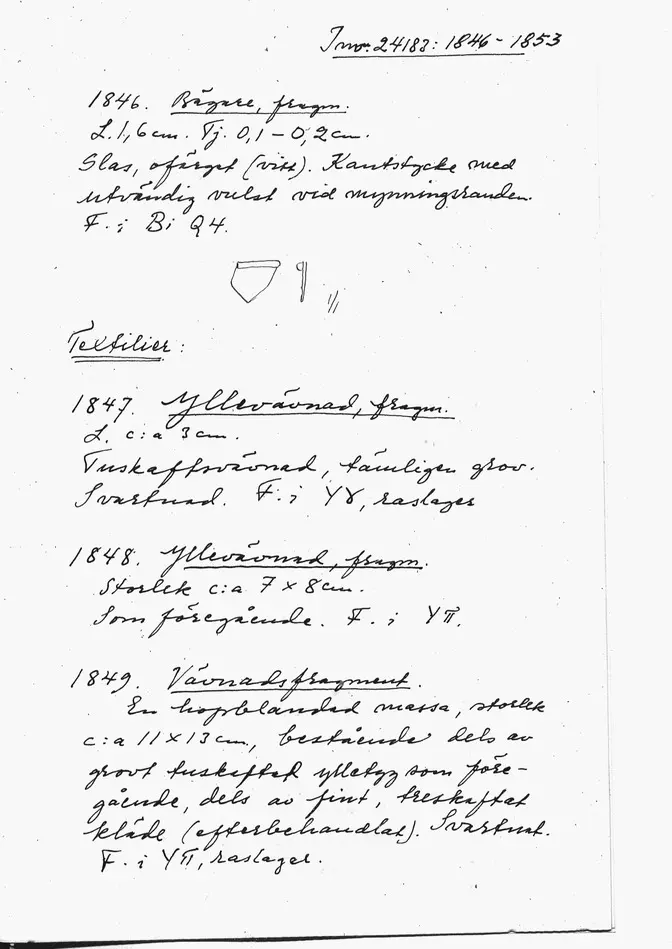 Inv. 24183: 1846 - 1853
1846. Bägare, fragm.
L. 1,6 cm. Tj. 0,1 - 0,2 cm.
Glas, ofärgat (vitt). Kantstycke med
utvändig vulst vid mynningsranden.
F. i Bi Q4.
1/1
Textilier:
1847. Yllevävnad, fragm.
L. c:a 3 cm.
Tuskaftsvävnad, tämligen grov.
Svartnad. F. i YX, raslager
1848. Yllevävnad, fragm.
Storlek c:a 7 x 8 cm.
Som föregående. F. i YII.
1849. Vävnadsfragment.
En hopblandad massa, storlek
c:a 11 x 13 cm, bestående dels av
grovt tuskaftad ylletyg som före-
gående, dels av fint, treskaftat
kläde (efterbehandlat). Svartnat.
F. i YII, raslager.